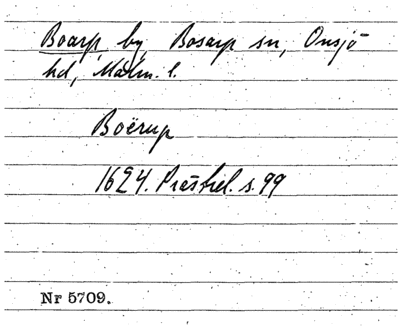 Boarp by, Bosarp sn, Onsjö
hd, Malm. l.
Boërup
1624. Prästrel. s. 99
Nr 5709.